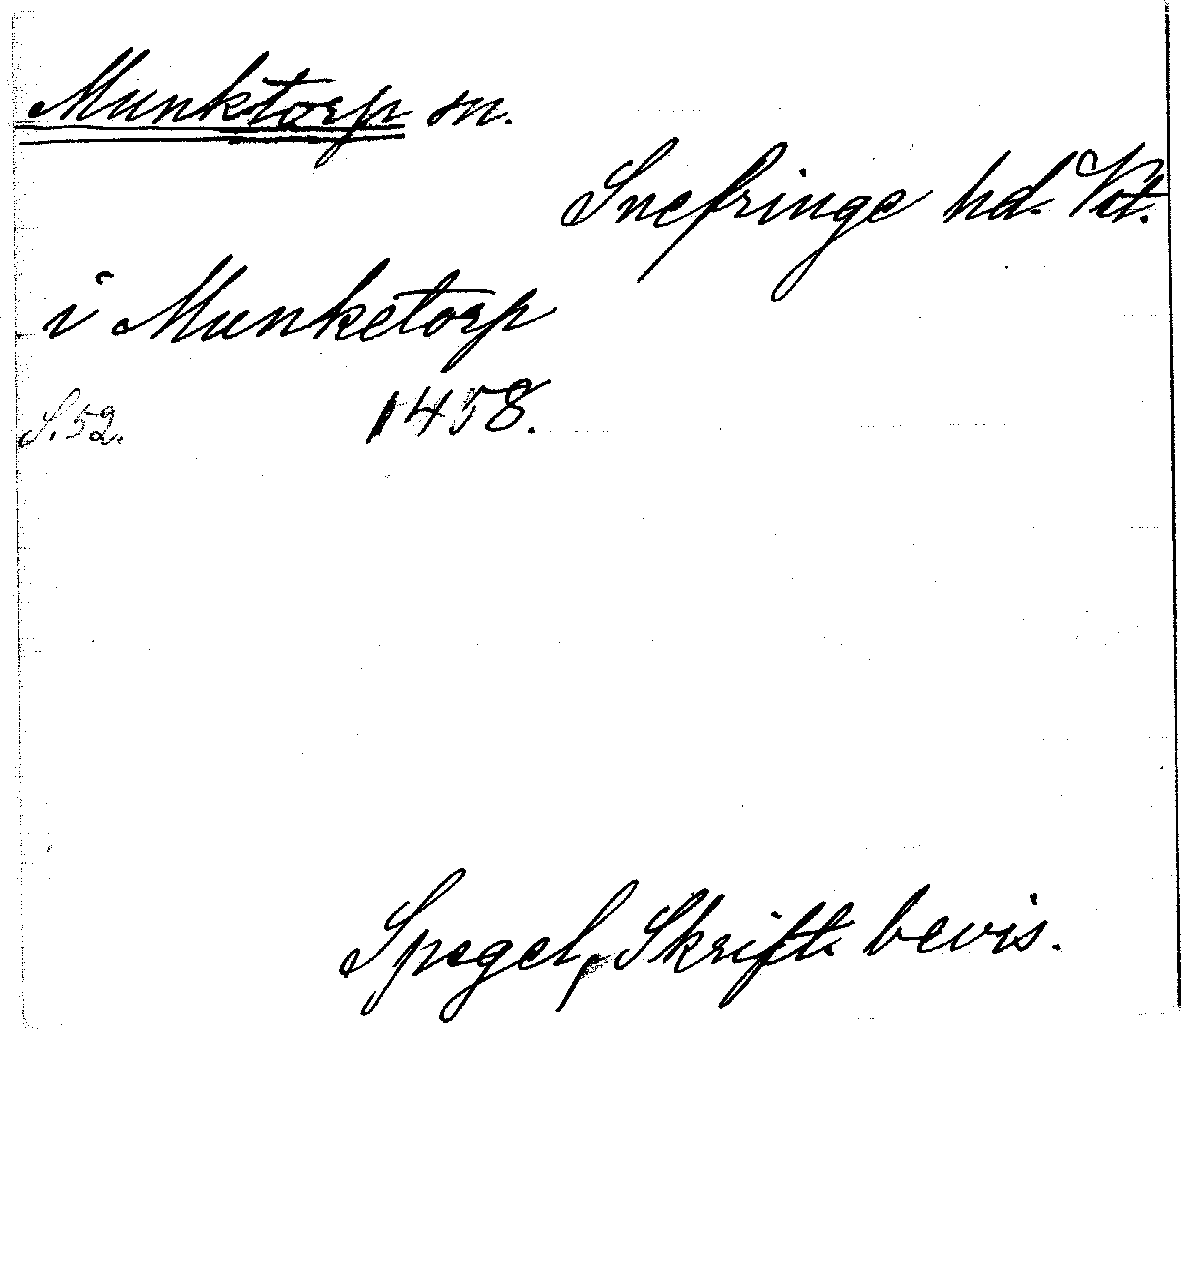 Munktorp sn.
Snefringe hd. Vst.
i Munketorp
S. 52. 1458.
Spegel, Skriftl. bevis.